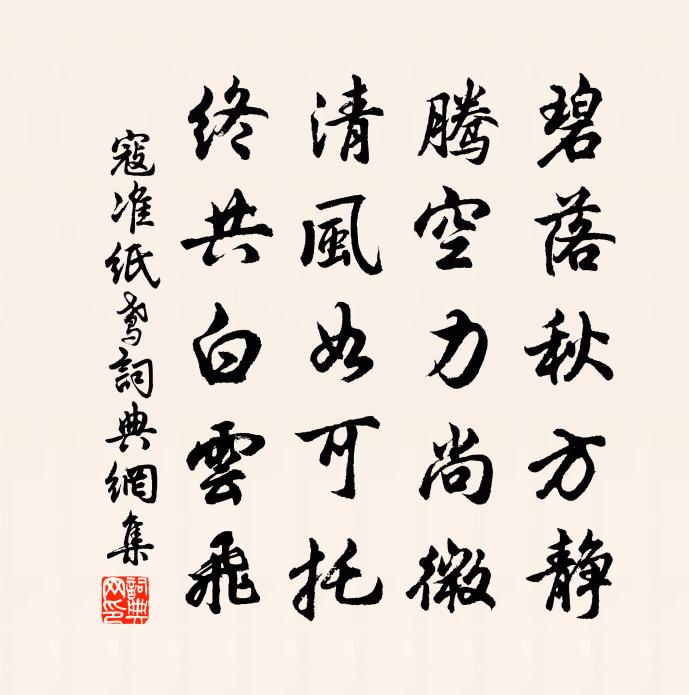 碧落秋方静
騰空力尚微
清風如可托
終共白雲飛
寇准紙鳶詞典網集
詞典網印